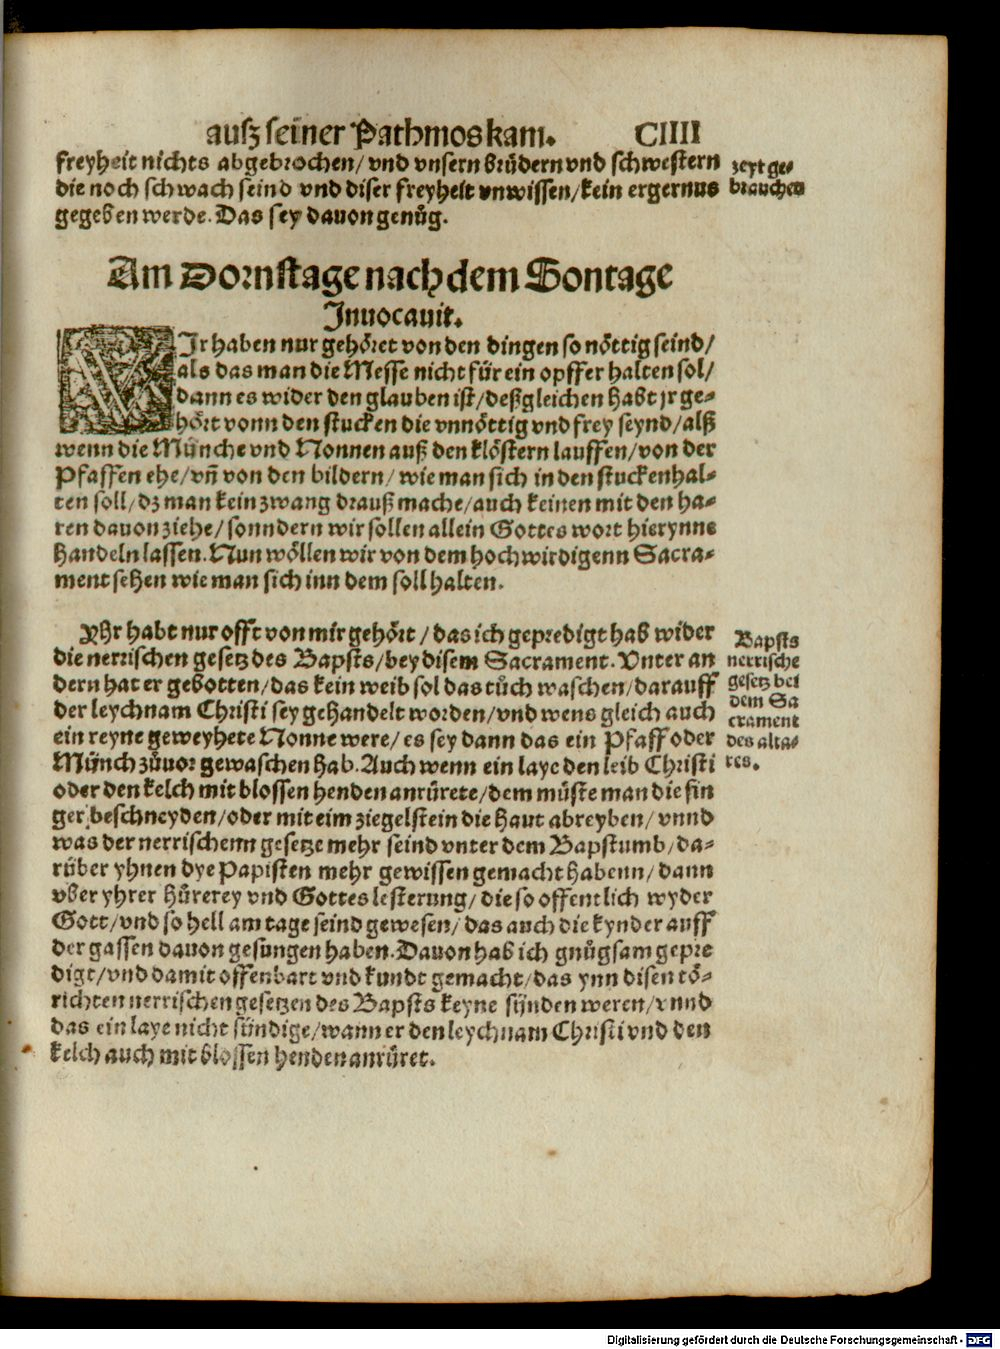 ausz seiner Pathmos kam. CIIII
freyheit nichts abgebrochen/ vnd vnsern brüdern vnd schwestern
die noch schwach seind vnd diser freyheit vnwissen/ kein ergernus
gegeben werde. Das sey dauon genůg.
zeyt ge-
brauchen
Am Dornstage nach dem Sontage
Inuocauit.
WIr haben nur gehöret von den dingen so nöttig seind/
als das man die Messe nicht für ein opffer halten sol/
dann es wider den glauben ist/ deßgleichen habt jr ge-
hört vonn den stucken die vnnöttig vnd frey seynd/ alß
wenn die Münche vnd Nonnen auß den klöstern lauffen/ von der
Pfaffen ehe/ vñ von den bildern/ wie man sich in den stucken hal-
ten soll/ dz man kein zwang drauß mache/ auch keinen mit den ha-
ren dauon ziehe/ sonndern wir sollen allein Gottes wort hierynne
handeln lassen. Nun wöllen wir von dem hochwirdigenn Sacra-
ment sehen wie man sich inn dem soll halten.
Yhr habt nur offt von mir gehört/ das ich gepredigt hab wider
die nerrischen gesetz des Bapsts/ bey disem Sacrament. Vnter an
dern hat er gebotten/ das kein weib sol das tůch waschen/ darauff
der leychnam Christi sey gehandelt worden/ vnd wens gleich auch
ein reyne geweyhete Nonne were/ es sey dann das ein Pfaff oder
Münch zůuor gewaschen hab. Auch wenn ein laye den leib Christi
oder den kelch mit blossen henden anrürete/ dem müste man die fin
ger beschneyden/ oder mit eim ziegelstein die haut abreyben/ vnnd
was der nerrischenn gesetze mehr seind vnter dem Bapstumb/ da-
rüber yhnen dye Papisten mehr gewissen gemacht habenn/ dann
vber yhrer hůrerey vnd Gottes lesterung/ die so offentlich wyder
Gott/ vnd so hell am tage seind gewesen/ das auch die kynder auff
der gassen dauon gesungen haben. Dauon hab ich gnůgsam gepre
digt/ vnd damit offenbart vnd kundt gemacht/ das ynn disen tö-
richten nerrischen gesetzen des Bapsts keyne sünden weren/ vnnd
das ein laye nicht sündige/ wann er den leychnam Christi vnd den
kelch auch mit blossen henden anrüret.
Bapsts
nerrische
gesetz bei
dem Sa
crament
des alta-
res.
Digitalisierung gefördert durch die Deutsche Forschungsgemeinschaft - DFG